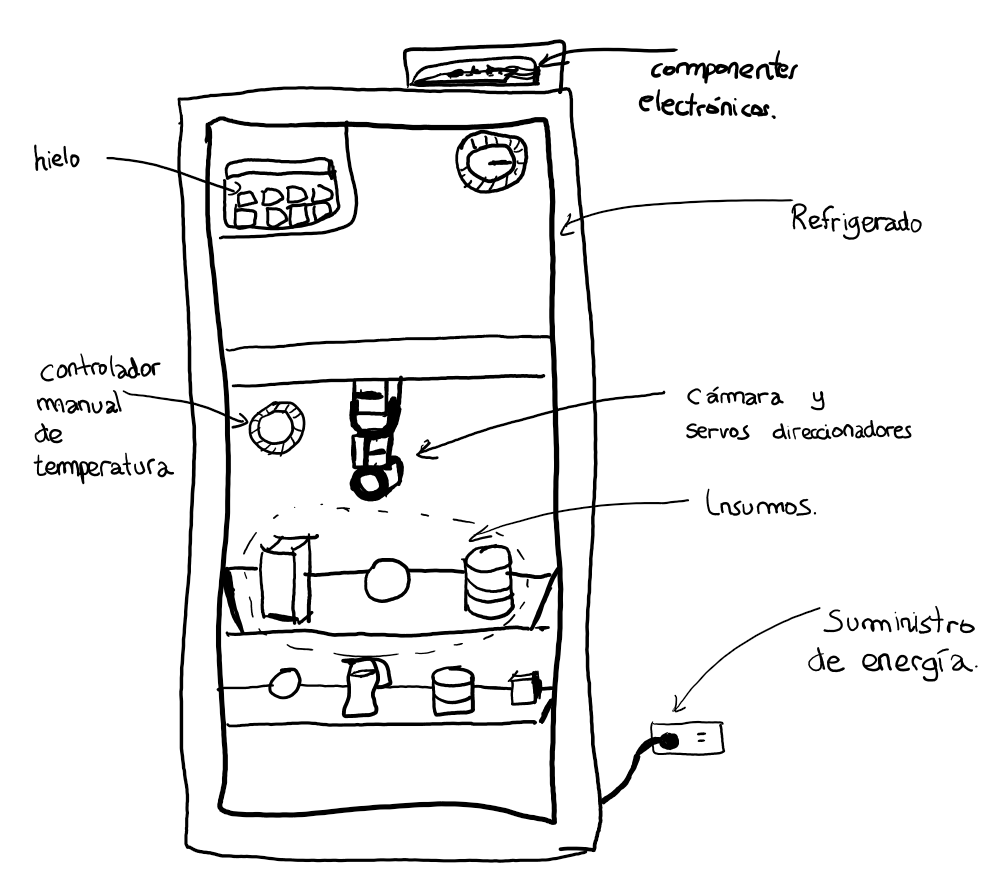 componentes
electrónicos.
hielo
Refrigerado
controlador
manual
de
temperatura
Cámara y
servos direccionadores
Insumos.
Suministro
de energía.